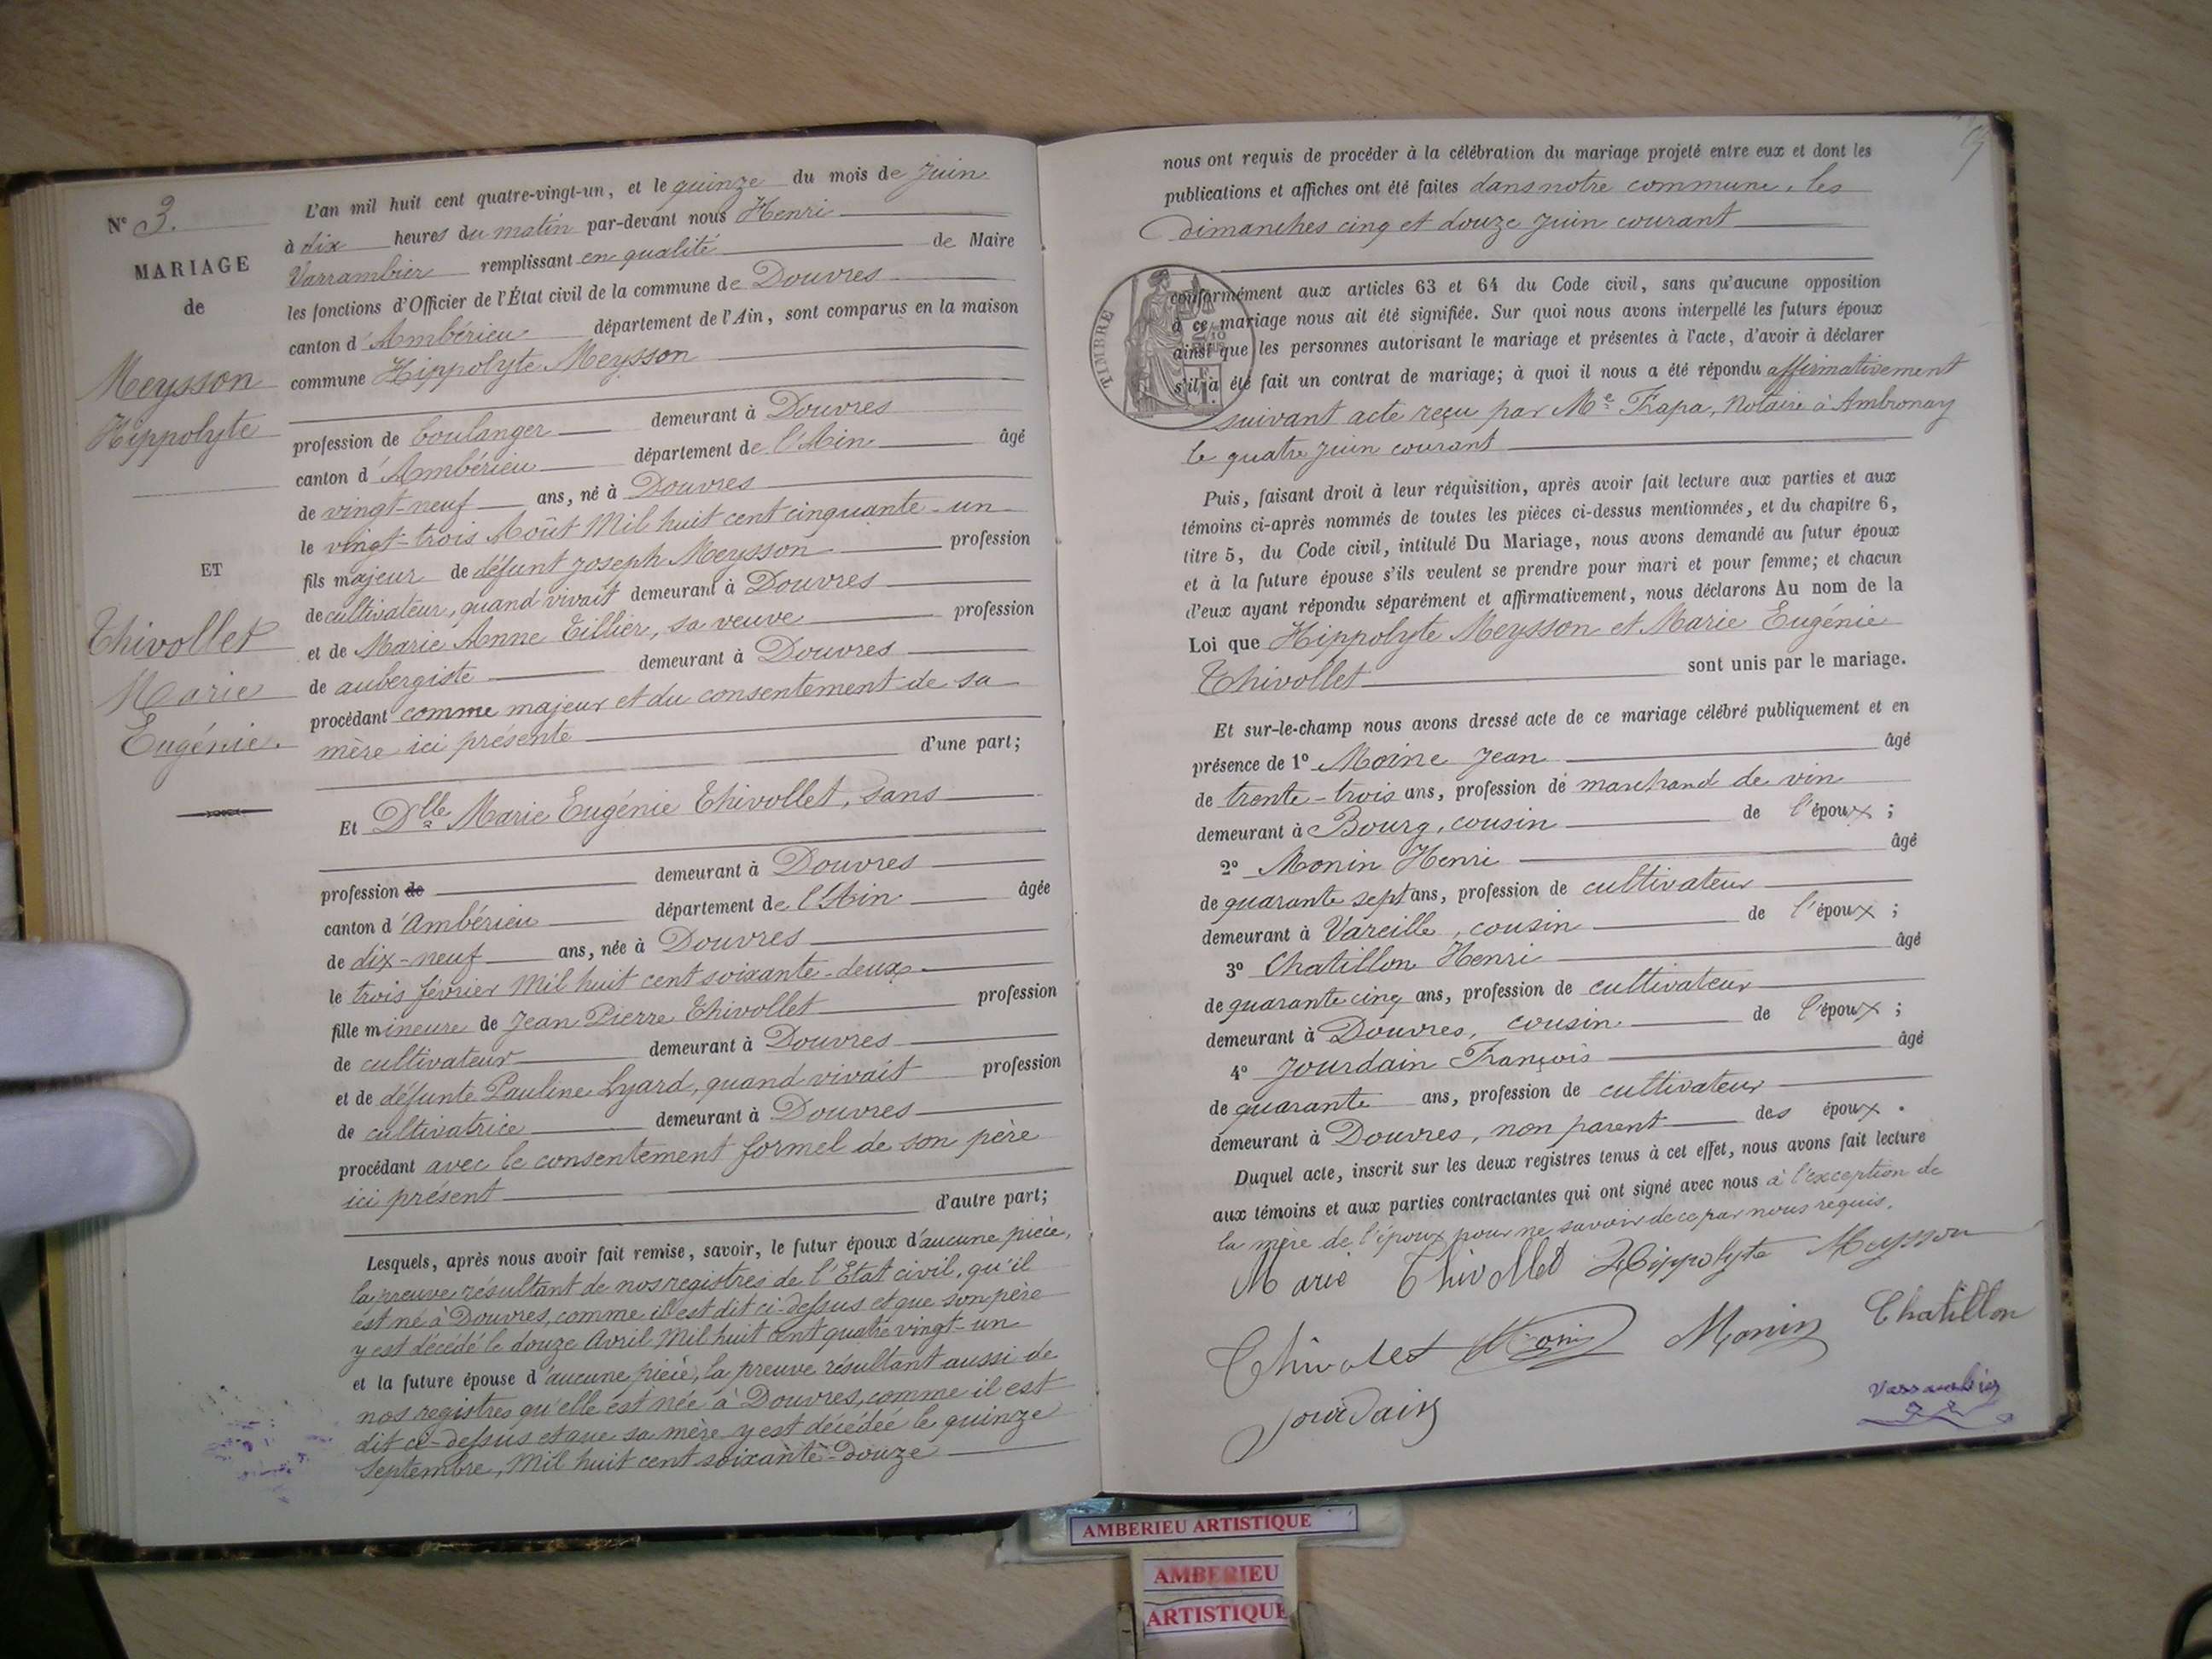 Nº 3.
MARIAGE
de
Meysson
Hippolyte
ET
Thivollet
Marie
Eugénie.
L'an mil huit cent quatre-vingt-un, et le quinze du mois de Juin
à dix heures du matin par-devant nous Henri
Varrambier remplissant en qualité de Maire
les fonctions d'Officier de l'État civil de la commune de Douvres
canton d'Ambérieu département de l'Ain, sont comparus en la maison
commune Hippolyte Meysson
profession de boulanger demeurant à Douvres
canton d'Ambérieu département de l'Ain âgé
de vingt-neuf ans, né à Douvres
le vingt-trois Août Mil huit cent cinquante-un
fils majeur de défunt Joseph Meysson profession
de cultivateur, quand vivait demeurant à Douvres
et de Marie Anne Tillier, sa veuve profession
de aubergiste demeurant à Douvres
procédant comme majeur et du consentement de sa
mère ici présente d'une part;
Et Dlle Marie Eugénie Thivollet, sans
profession de demeurant à Douvres
canton d'Ambérieu département de l'Ain âgée
de dix-neuf ans, née à Douvres
le trois février Mil huit cent soixante-deux
fille mineure de Jean Pierre Thivollet profession
de cultivateur demeurant à Douvres
et de défunte Pauline Lyard, quand vivait profession
de cultivatrice demeurant à Douvres
procédant avec le consentement formel de son père
ici présent d'autre part;
Lesquels, après nous avoir fait remise, savoir, le futur époux d'aucune pièce,
la preuve résultant de nos registres de l'Etat civil, qu'il
est né à Douvres, comme il est dit ci-dessus et que son père
y est décédé le douze Avril Mil huit cent quatre vingt-un
et la future épouse d'aucune pièce, la preuve résultant aussi de
nos registres qu'elle est née à Douvres, comme il est
dit ci-dessus et que sa mère y est décédée le quinze
Septembre, Mil huit cent soixante-Douze
nous ont requis de procéder à la célébration du mariage projeté entre eux et dont les
publications et affiches ont été faites dans notre commune, les
dimanches cinq et douze Juin courant
TIMBRE
conformément aux articles 63 et 64 du Code civil, sans qu'aucune opposition
à ce mariage nous ait été signifiée. Sur quoi nous avons interpellé les futurs époux
ainsi que les personnes autorisant le mariage et présentes à l'acte, d'avoir à déclarer
s'il a été fait un contrat de mariage; à quoi il nous a été répondu affirmativement
suivant acte reçu par Me Frapa, Notaire à Ambronay
le quatre Juin courant
Puis, faisant droit à leur réquisition, après avoir fait lecture aux parties et aux
témoins ci-après nommés de toutes les pièces ci-dessus mentionnées, et du chapitre 6,
titre 5, du Code civil, intitulé Du Mariage, nous avons demandé au futur époux
et à la future épouse s'ils veulent se prendre pour mari et pour femme; et chacun
d'eux ayant répondu séparément et affirmativement, nous déclarons Au nom de la
Loi que Hippolyte Meysson et Marie Eugénie
Thivollet sont unis par le mariage.
Et sur-le-champ nous avons dressé acte de ce mariage célébré publiquement et en
présence de 1º Moine Jean âgé
de trente-trois ans, profession de marchand de vin
demeurant à Bourg, cousin de l'époux;
2º Monin Henri âgé
de quarante sept ans, profession de cultivateur
demeurant à Vareille, cousin de l'époux;
3º Chatillon Henri âgé
de quarante cinq ans, profession de cultivateur
demeurant à Douvres, cousin de l'époux;
4º Jourdain François âgé
de quarante ans, profession de cultivateur
demeurant à Douvres, non parent des époux.
Duquel acte, inscrit sur les deux registres tenus à cet effet, nous avons fait lecture
aux témoins et aux parties contractantes qui ont signé avec nous à l'exception de
la mère de l'époux pour ne savoir de ce par nous requis.
Marie Thivollet Hippolyte Meysson
Thivolet Monin Chatillon
Jourdain
Varrambier
AMBERIEU ARTISTIQUE
AMBERIEU
ARTISTIQUE